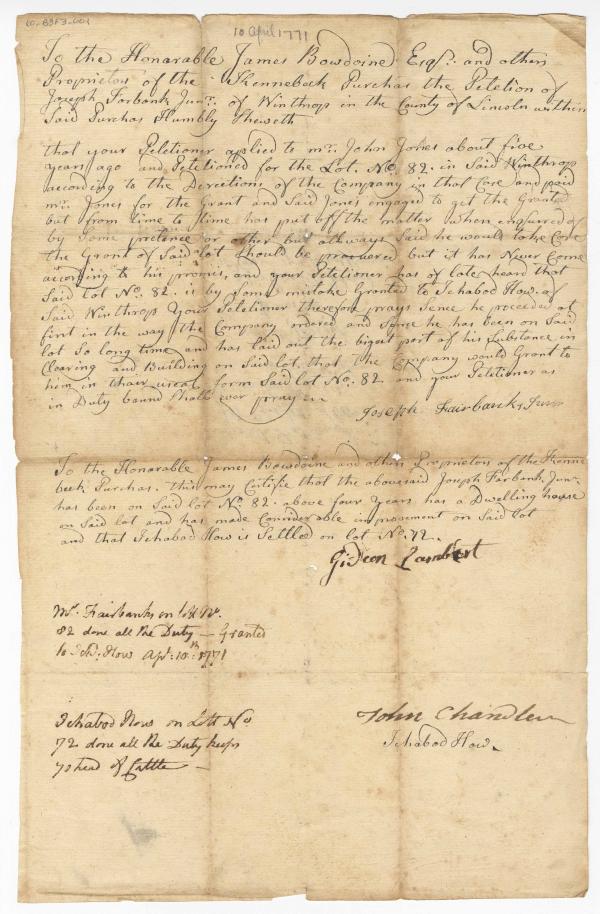 10 April 1771
To the Honarable James Bowdoine Esqr. and others
Proprietors of the Kennebeck Purchas the Petetion of
Joseph Forbank Junr. of Winthrop in the County of Lincoln within
Said Purchas Humbly Sheweth
that your Petetioner applyed to mr. John Jones about five
years ago and Petetioned for the Lot. No. 82. in Said Winthrop
according to the Directions of the Company in that Care and paid
mr. Jones for the Grant and Said Jones engaged to get the Granted
but from time to time has put off the matter when enquired of
by Some pretence or other but allways Said he would take Care
the Grant of Said lot Should be procuered but it has Never Come
according to his promis, and your Petetioner has of late heard that
Said lot No. 82. is by Some mistake Granted to Ichabod How. of
Said Winthrop your Petetioner therefore prays Sence he preceded at
first in the way the Company ordered and Sence he has been on Said
lot So long time and has laid out the bigest part of his Substance in
Clearing and Building on Said lot. that the Company would Grant to
him in thair useal form Said lot No. 82 and your Petetioner as
in Duty bound Shall ever pray
Joseph Fairbanks Junr
To the Honarable James Bowdoine and others Proprietors of the Kenne
beck Purchas. this may Certifie that the abovesaid Joseph Farbank Junr.
has been on Said lot No. 82. above four years has a Dwelling house
on Said lot and has made Considerable improvement on Said lot
and that Ichabod How is Settled on lot No. 72.
Gideon Lambert
Mr. Fairbanks on lott No.
82 done all the Duty — Granted
to Ichd. How Apl. 10th 1771
Ichabod Hows on Lott No
72 done all the Duty keeps
70 head of Cattle —
John Chandler
Ichabod How